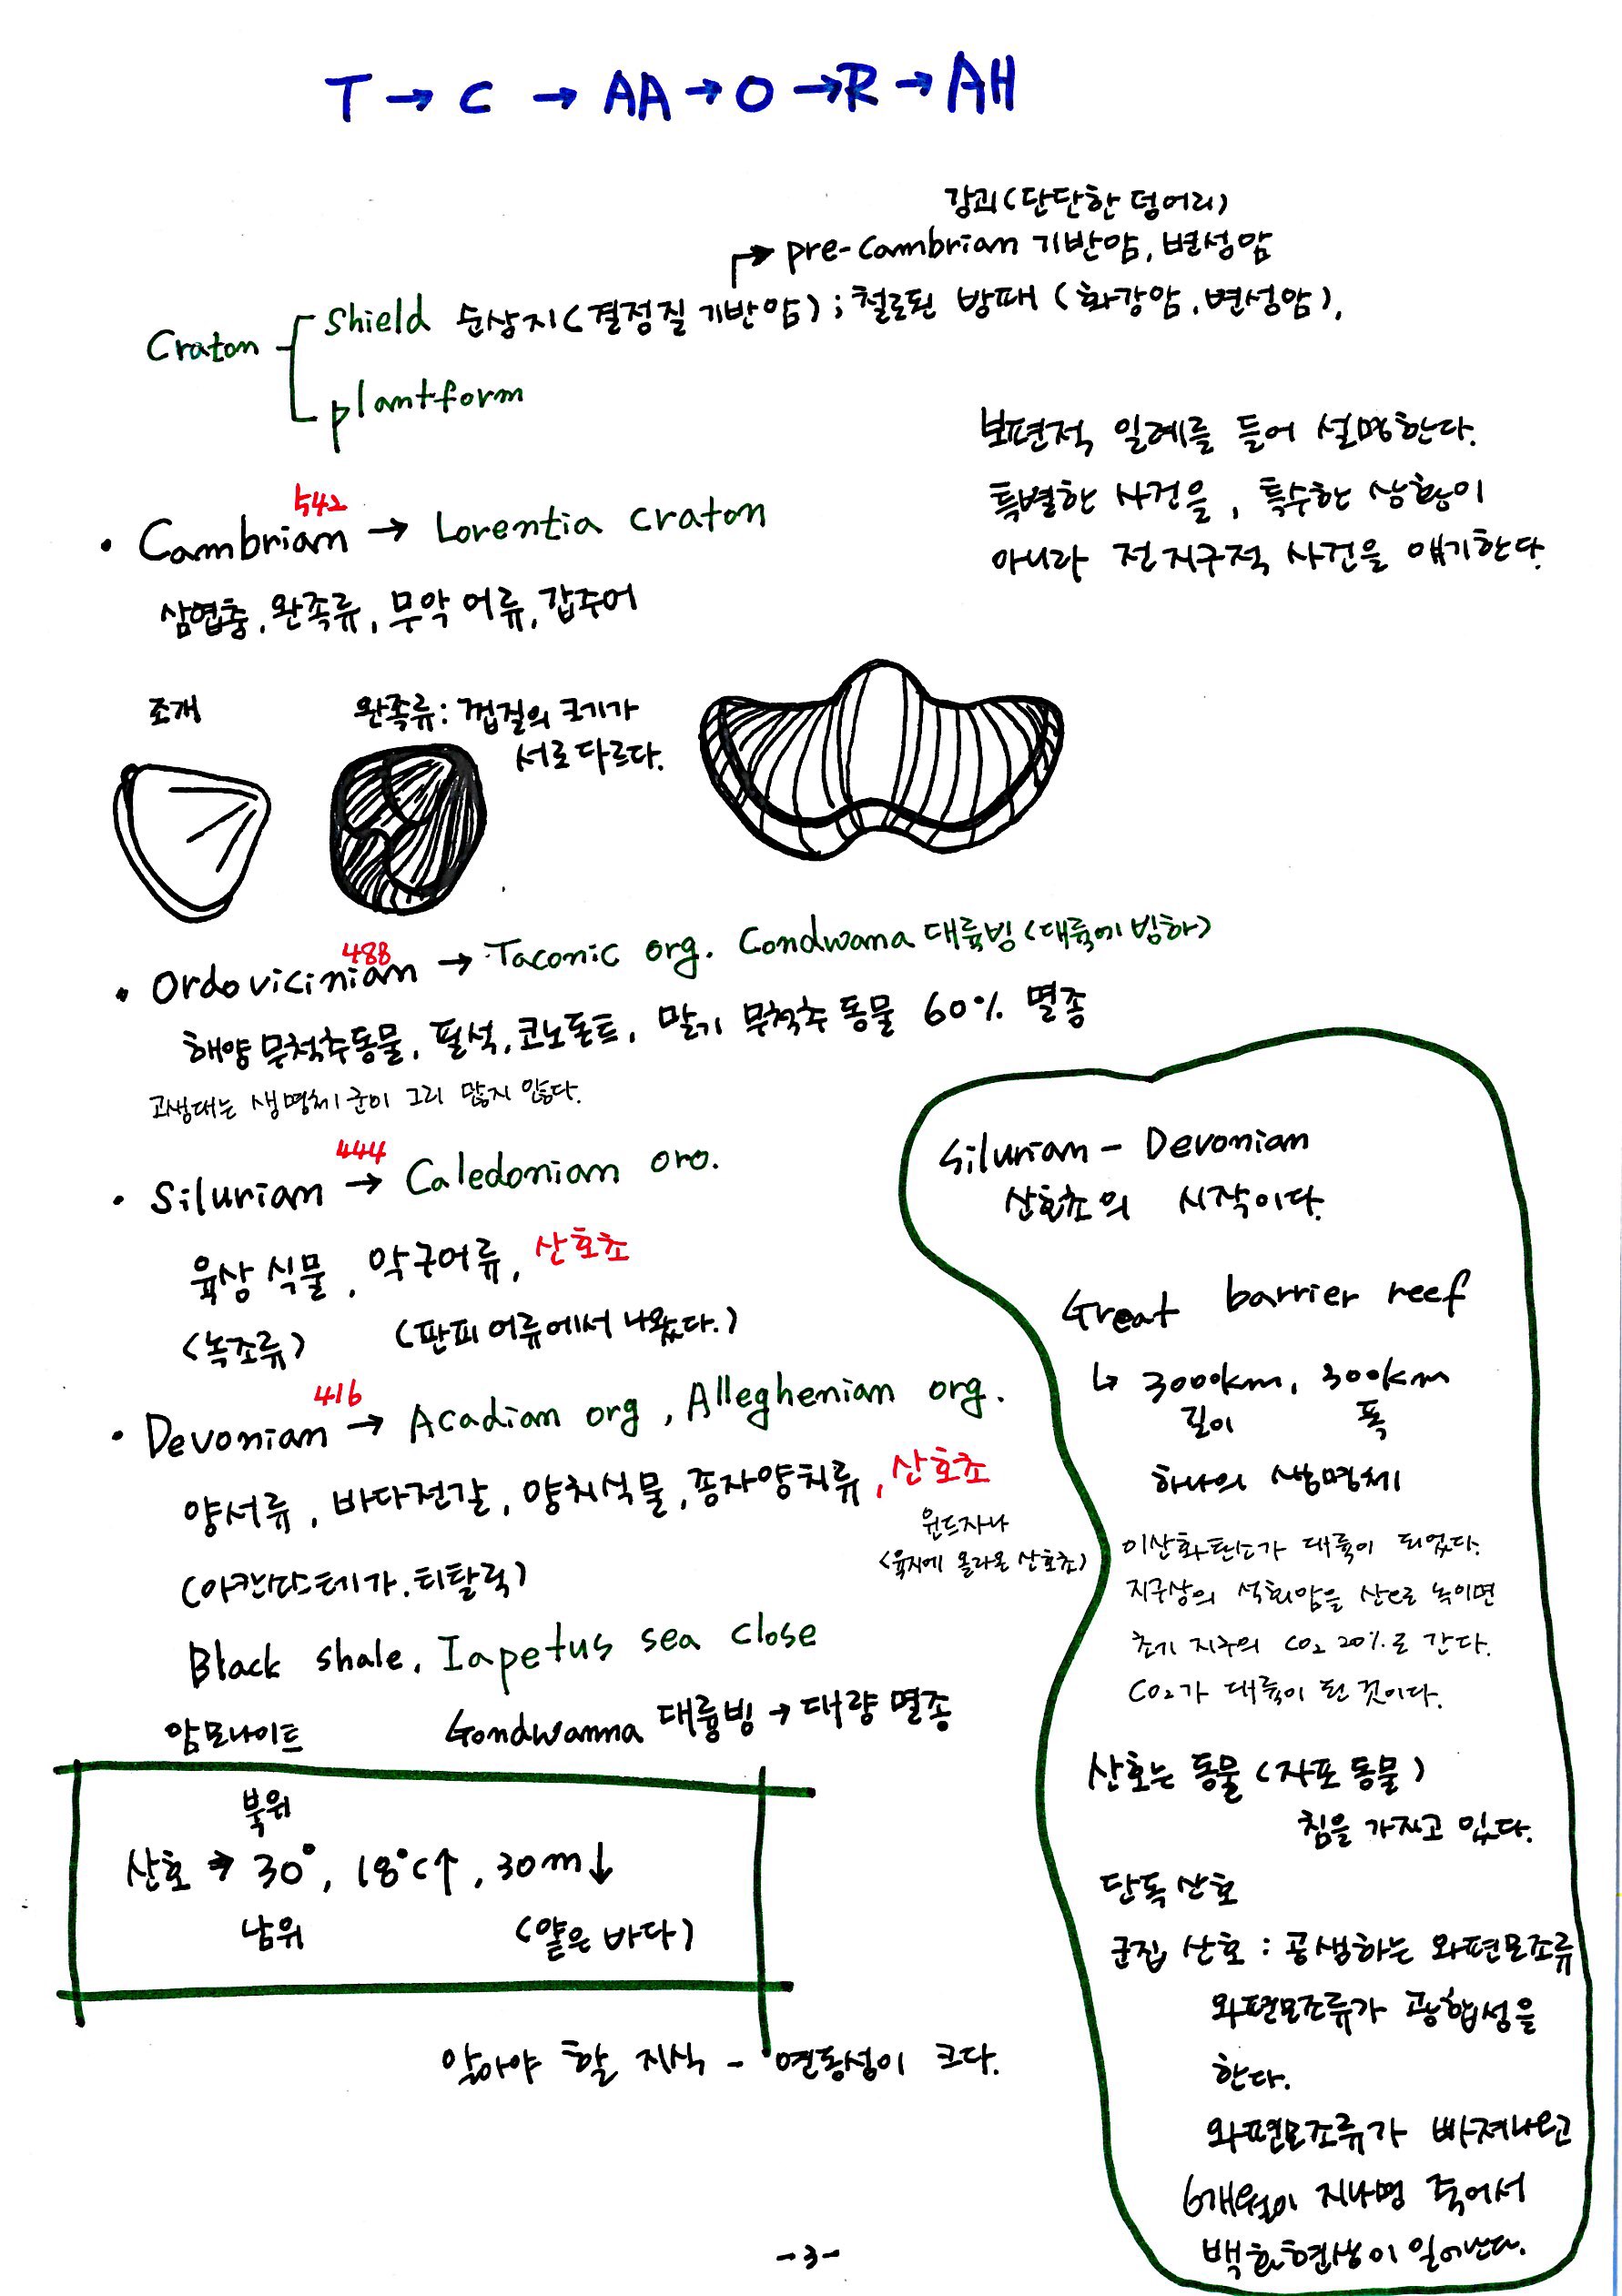 T → C → AA → O → R → AH
강괴(단단한 덩어리)
pre-cambrian 기반암, 변성암
Craton
Shield 순상지(결정질 기반암) ; 철로된 방패 (화강암, 변성암),
plantform
보편적 일례를 들어 설명한다.
특별한 사건을, 특수한 상황이
아니라 전지구적 사건을 얘기한다.
542
• Cambrian → Lorentia craton
삼엽충, 완족류, 무악어류, 갑주어
조개
완족류 : 껍질의 크기가
서로 다르다.
488
• Ordovicinian → Taconic org. Condwana 대륙빙 (대륙에 빙하)
해양 무척추동물, 필석, 코노돈트, 말기 무척추 동물 60% 멸종
고생대는 생명체군이 그리 많지 않다.
444
• Silurian → Caledonian oro.
육상 식물, 악구어류, 산호초
(녹조류) (판피어류에서 나왔다.)
416
• Devonian → Acadian org, Alleghenian org.
양서류, 바다전갈, 양치식물, 종자양치류, 산호초
윈드자나
(육지에 올라온 산호초)
(아칸다스테가. 티탈릭)
Black shale, Iapetus sea close
암모나이트 Gondwanna 대륙빙 → 대량 멸종
북위
산호 → 30°, 18°C↑, 30m↓
남위 (얕은 바다)
알아야 할 지식 - 연동성이 크다.
Silurian - Devonian
산호초의 시작이다.
Great barrier reef
↳ 3000km, 300km
길이 폭
하나의 생명체
이산화탄소가 대륙이 되었다.
지구상의 석회암을 산으로 녹이면
초기 지구의 CO2 20%로 간다.
CO2가 대륙이 된 것이다.
산호는 동물 (자포 동물)
침을 가지고 있다.
단독 산호
군집 산호 : 공생하는 와편모조류
와편모조류가 광합성을
한다.
와편모조류가 빠져나오고
6개월이 지나면 죽어서
백화현상이 일어난다.
-3-